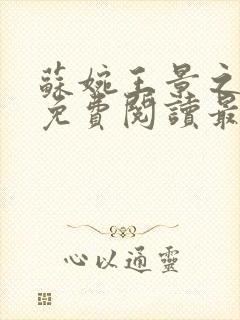 蘇婉王景之
免費閱讀最
心以通靈